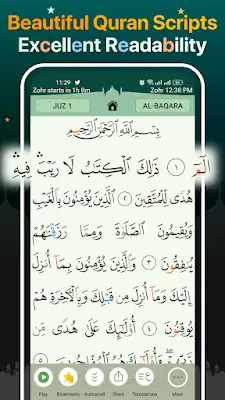 Beautiful Quran Scripts
Excellent Readability
11:29
Zohr starts in 1h 8m
Zohr 12:38 PM
JUZ 1
AL-BAQARA
بِسْمِ اللَّهِ الرَّحْمَٰنِ الرَّحِيمِ
الٓمٓ ١ ذَٰلِكَ الْكِتَٰبُ لَا رَيْبَ فِيهِ
هُدًى لِّلْمُتَّقِينَ ٢ الَّذِينَ يُؤْمِنُونَ بِالْغَيْبِ
وَيُقِيمُونَ الصَّلَاةَ وَمِمَّا رَزَقْنَٰهُمْ
يُنفِقُونَ ٣ وَالَّذِينَ يُؤْمِنُونَ بِمَآ أُنزِلَ
إِلَيْكَ وَمَآ أُنزِلَ مِن قَبْلِكَ وَبِالْآخِرَةِ هُمْ
يُوقِنُونَ ٤ أُو۟لَٰٓئِكَ عَلَىٰ هُدًى مِّن
Play
Bookmarks
Autoscroll
Share
Translations
More